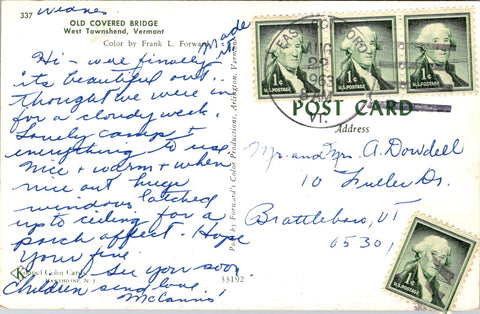 337
OLD COVERED BRIDGE
West Townshend, Vermont
Color by Frank L. Forward
Made it
Hi - were finally
its beautiful out.
thought we were in
for a cloudy week.
Lovely camp &
everything to use
nice & warm & when
nice out huge
windows latched
up to ceiling for a
porch affect. Hope
your fine
See you soon
children send love
McCanns
Color Card
HAWTHORNE, N. J.
33192
Pub. by Forward's Color Productions, Arlington, Vermont
1c
U.S. POSTAGE
1c
U.S. POSTAGE
1c
U.S. POSTAGE
EAST
AUG
22
1963
VT.
POST CARD
Address
Mr. and Mrs. A. Dowdell
10 Fuller Dr.
Brattleboro, VT
05301
1c
U.S. POSTAGE